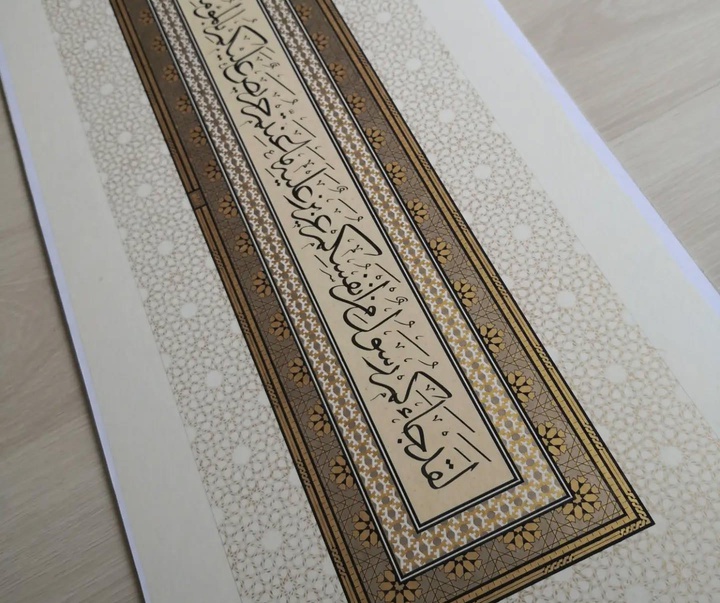 لَقَدْ جَاءَكُمْ رَسُولٌ مِنْ أَنْفُسِكُمْ عَزِيزٌ عَلَيْهِ مَا عَنِتُّمْ حَرِيصٌ عَلَيْكُمْ